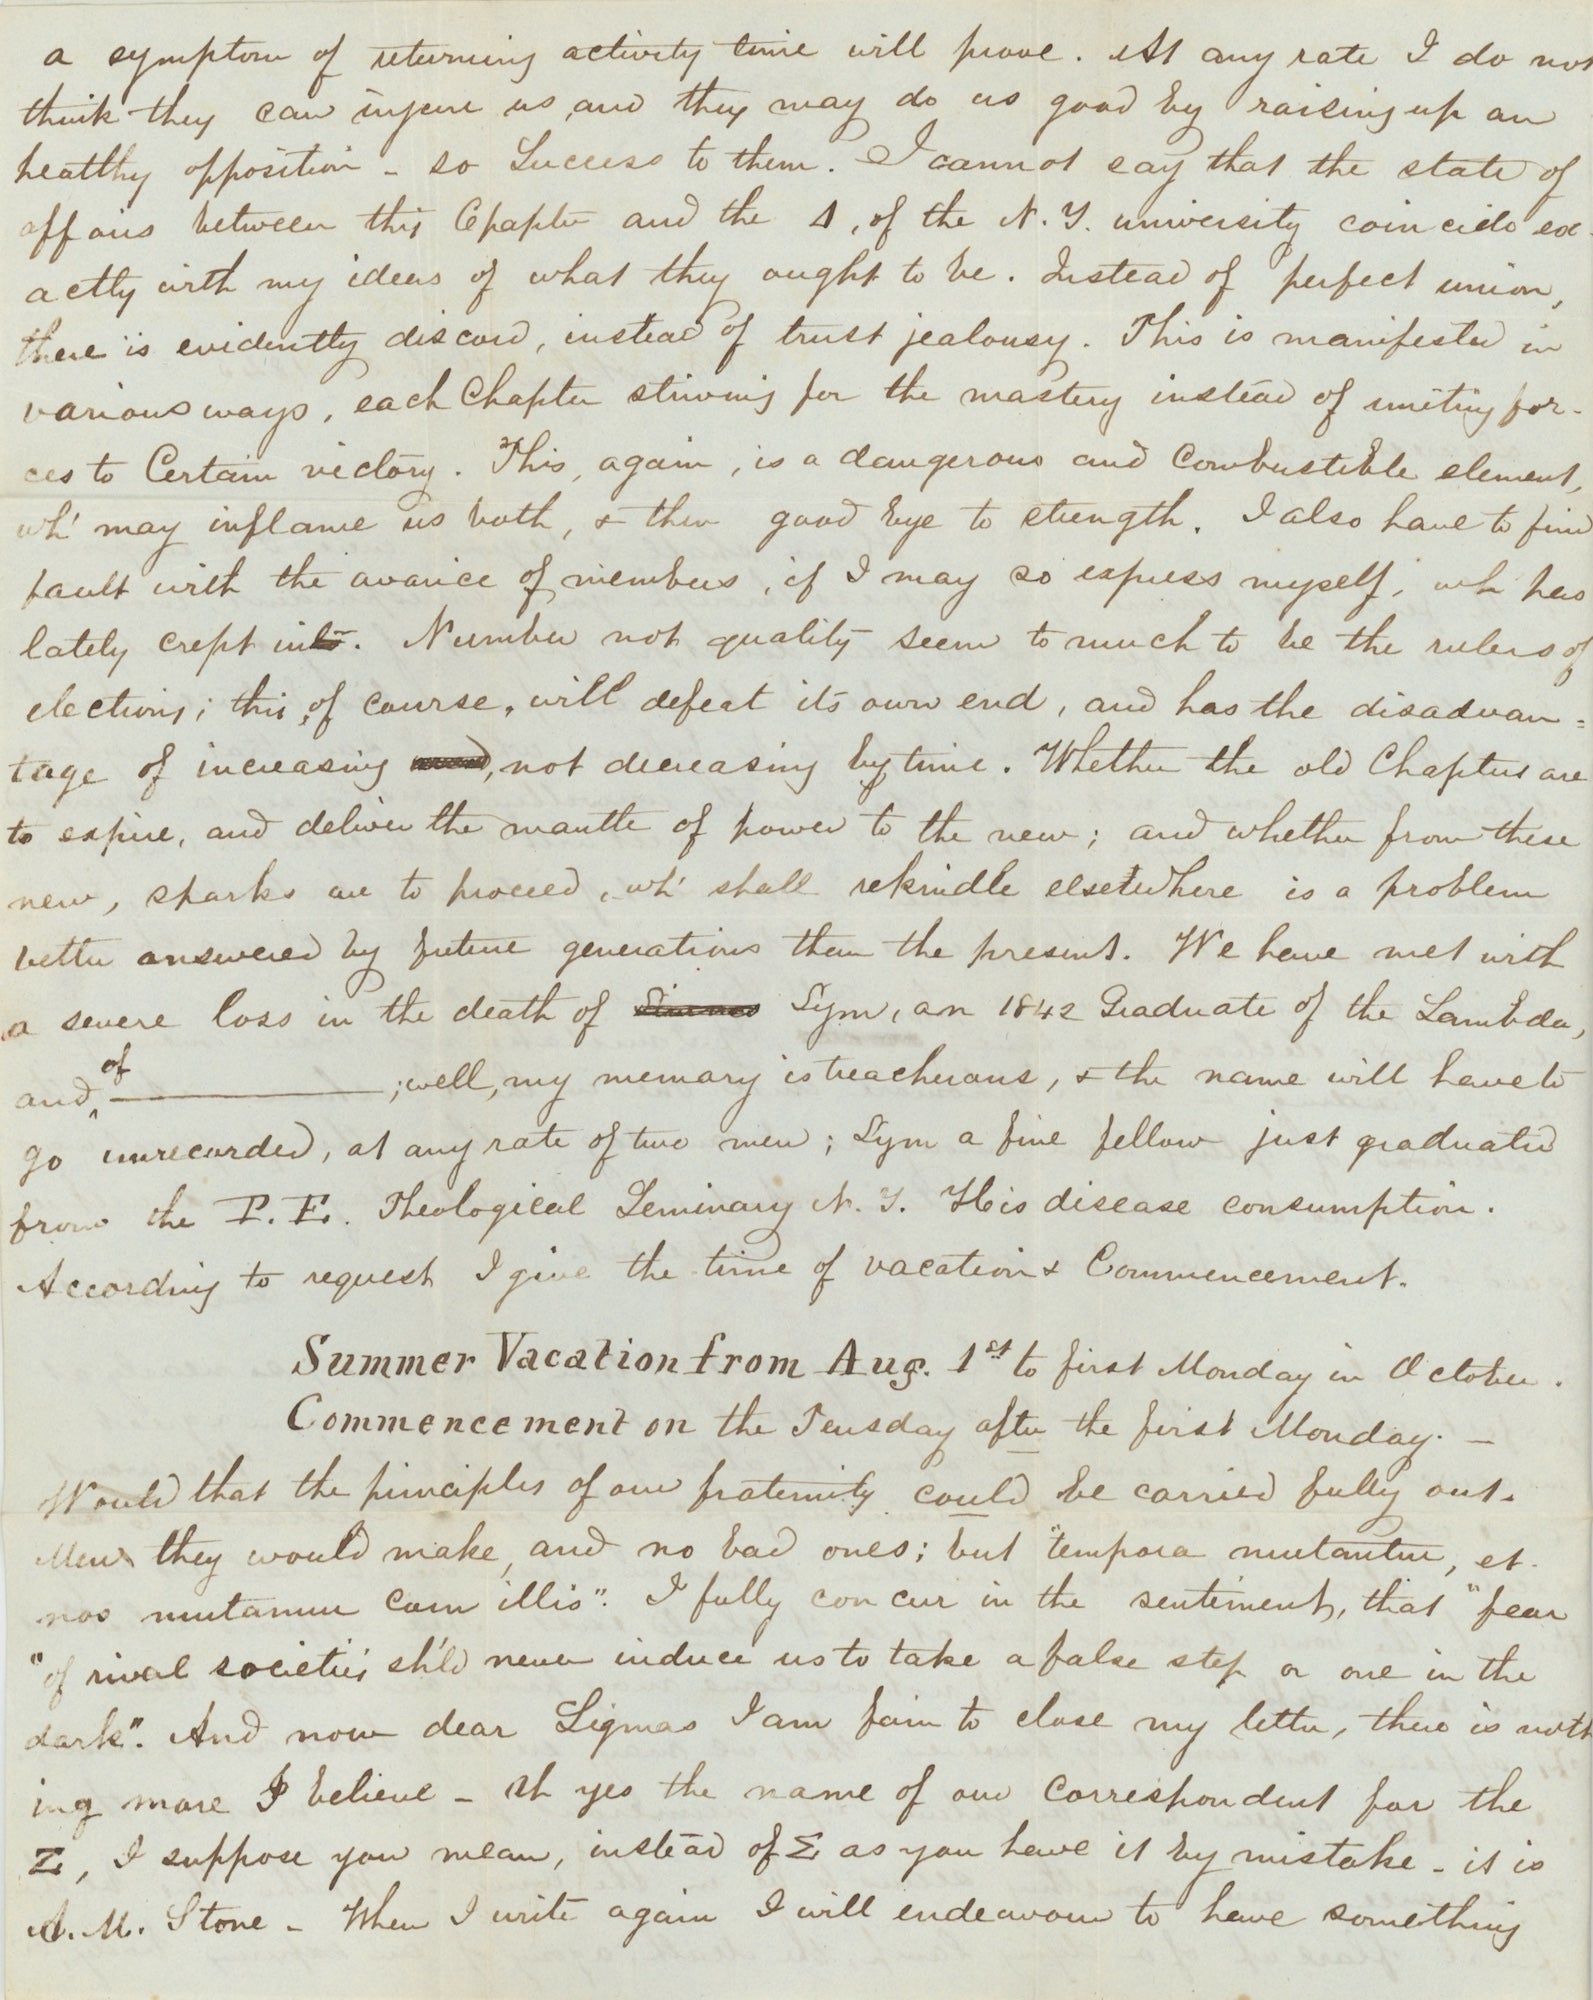 a symptom of returning activity time will prove. At any rate I do not
think they can injure us, and they may do us good by raising up an
healthy opposition - so Success to them. I cannot say that the state of
affairs between this Chapter and the Δ, of the N. Y. university coincide ex-
actly with my ideas of what they ought to be. Instead of perfect union,
there is evidently discord, instead of trust jealousy. This is manifested in
various ways, each Chapter striving for the mastery instead of uniting for-
ces to Certain victory. This, again, is a dangerous and Combustible element,
wh' may inflame us both, & then good bye to strength. I also have to find
fault with the avarice of members, if I may so express myself, wh has
lately crept in. Number not quality seem to much to be the rulers of
elections; this, of course, will defeat its own end, and has the disadvan=
tage of increasing, not decreasing by time. Whether the old Chapters are
to expire, and deliver the mantle of power to the new; and whether from these
new, sparks are to proceed, wh' shall rekindle elsewhere is a problem
better answered by future generations than the present. We have met with
a severe loss in the death of Sym, an 1842 Graduate of the Lambda,
and, of ————; well, my memory is treacherous, & the name will have to
go unrecorded, at any rate of two men; Sym a fine fellow just graduated
from the P. E. Theological Seminary N. Y. His disease consumption.
According to request I give the time of vacation & Commencement.
Summer Vacation from Aug. 1st to first Monday in October.
Commencement on the Teusday after the first Monday. -
Would that the principles of our fraternity could be carried fully out.
Men they would make, and no bad ones; but "tempora mutantur, et
nos mutamur cum illis". I fully concur in the sentiment, that "fear
"of rival societies sh'ld never induce us to take a false step or one in the
dark". And now dear Sigmas I am fain to close my letter, there is noth
ing more I believe - Ah yes the name of our Correspondent for the
Z, I suppose you mean, instead of Σ as you have it by mistake - it is
A. M. Stone - When I write again I will endeavour to have something